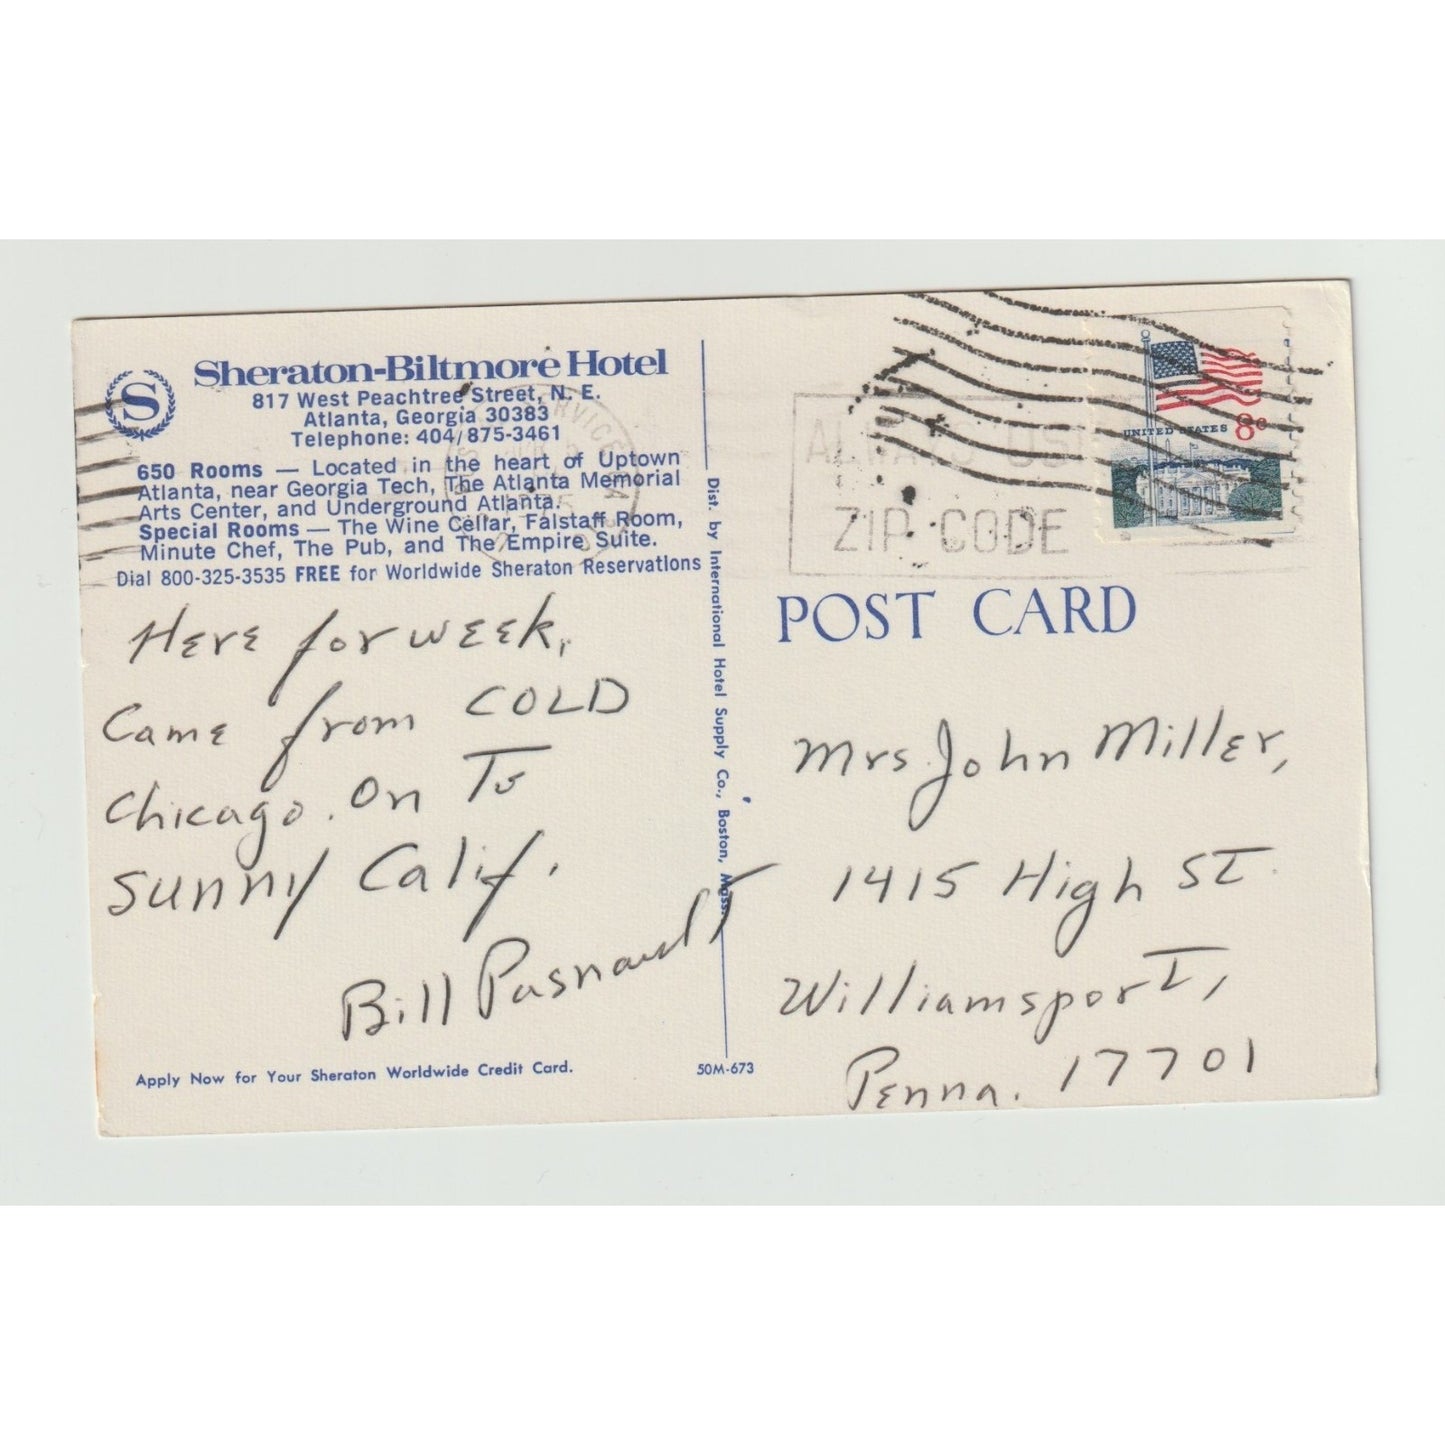 Sheraton-Biltmore Hotel
817 West Peachtree Street, N. E.
Atlanta, Georgia 30383
Telephone: 404/875-3461
S
650 Rooms — Located in the heart of Uptown
Atlanta, near Georgia Tech, The Atlanta Memorial
Arts Center, and Underground Atlanta.
Special Rooms — The Wine Cellar, Falstaff Room,
Minute Chef, The Pub, and The Empire Suite.
Dial 800-325-3535 FREE for Worldwide Sheraton Reservations
Here for week,
Came from COLD
Chicago. On To
Sunny Calif.
Bill
Apply Now for Your Sheraton Worldwide Credit Card.
Dist. by International Hotel Supply Co., Boston, Mass.
50M-673
ALWAYS USE
ZIP CODE
UNITED STATES 8c
POST CARD
Mrs. John Miller,
1415 High ST.
Williamsport,
Penna. 17701